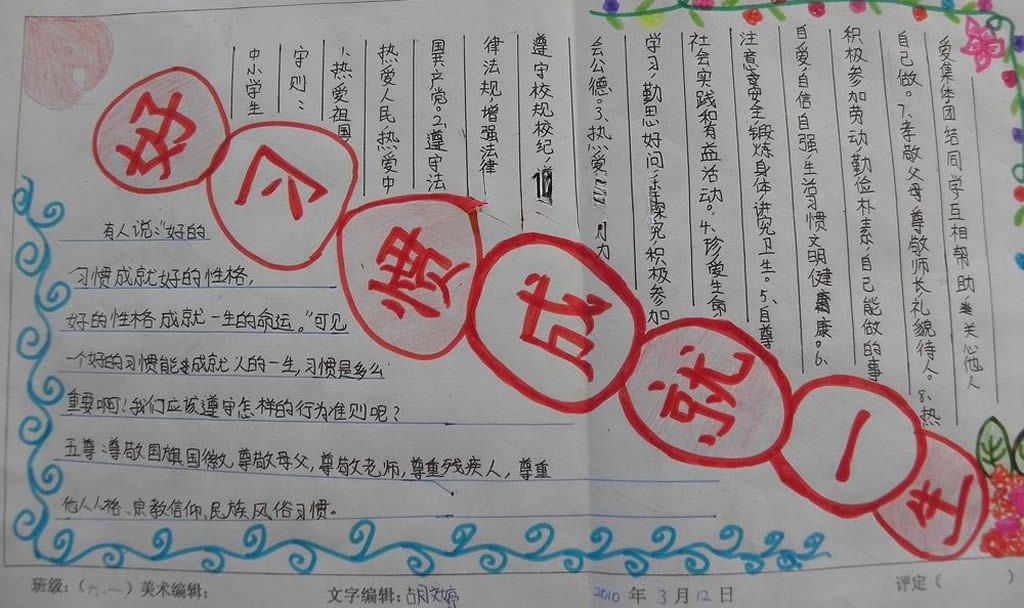 好习惯成就一生
中小学生
守则：
1、热爱祖国
热爱人民热爱中
国共产党。2、遵守法
律法规,增强法律
遵守校规校纪,
会公德。3、热爱
学习,勤思好问,探究,积极参加
社会实践和有益活动。4、珍爱生命
注意安全,锻炼身体,讲究卫生。5、自尊
自爱,自信自强,生活习惯文明健康。6、
积极参加劳动,勤俭朴素,自己能做的事
自己做。7、孝敬父母,尊敬师长,礼貌待人。8、热
爱集体团结同学互相帮助,关心他人
有人说:“好的
习惯成就好的性格,
好的性格成就一生的命运。”可见
一个好的习惯能成就人的一生,习惯是多么
重要啊!我们应该遵守怎样的行为准则呢?
五尊:尊敬国旗国徽,尊敬母父,尊敬老师,尊重残疾人,尊重
他人人格、宗教信仰、民族风俗习惯。
班级:(六.一)美术编辑: 文字编辑:胡文婷 2010 年 3 月 12 日 评定( )